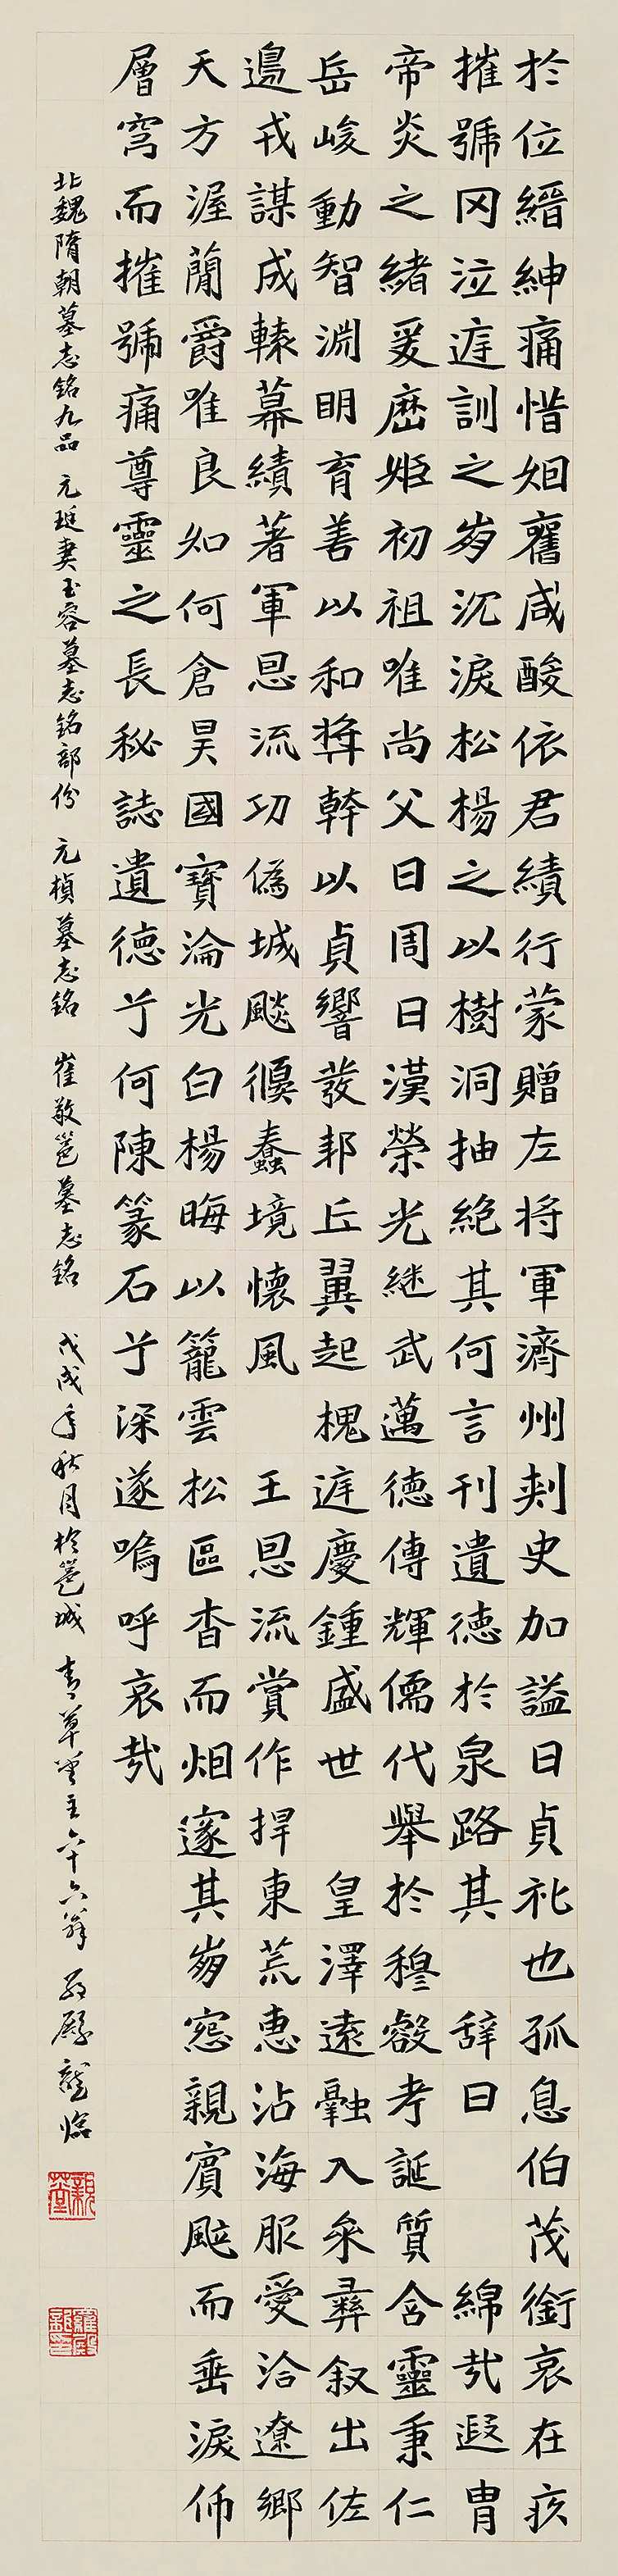 於位縉紳痛惜姻舊咸酸依君績行蒙贈左将軍濟州刾史加謚曰貞礼也孤息伯茂銜哀在疚
摧號冈泣庭訓之崩沉淚松楊之以樹洞抽絕其何言刊遺德於泉路其辞曰綿㢤遐胄
帝炎之緒爰歷姬初祖唯尚父曰周曰漢榮光継武邁德傳輝儒代舉於穆叡考誕質含靈秉仁
岳峻動智淵明育善以和奬幹以貞響發邦丘翼起槐庭慶鍾盛世皇澤遠融入參彝叙出佐
邊戎謀成轅幕績著軍恩流功偽城飇偃蠢境懷風王恩流賞作捍東荒惠沾海服愛洽遼鄉
天方渥蘭爵唯良如何倉昊國寶淪光白楊晦以籠雲松區杳而烟邃其崩窓親賓颰而垂淚仰
層穹而摧號痛尊靈之長秘誌遺德兮何陳篆石兮深遂嗚呼哀㢤
北魏隋朝墓志銘九品 元珽妻玉容墓志銘部份 元楨墓志銘 崔敬邕墓志銘 戊戌年秋月於邕城 青草堂主六十六翁 羅殿龍臨